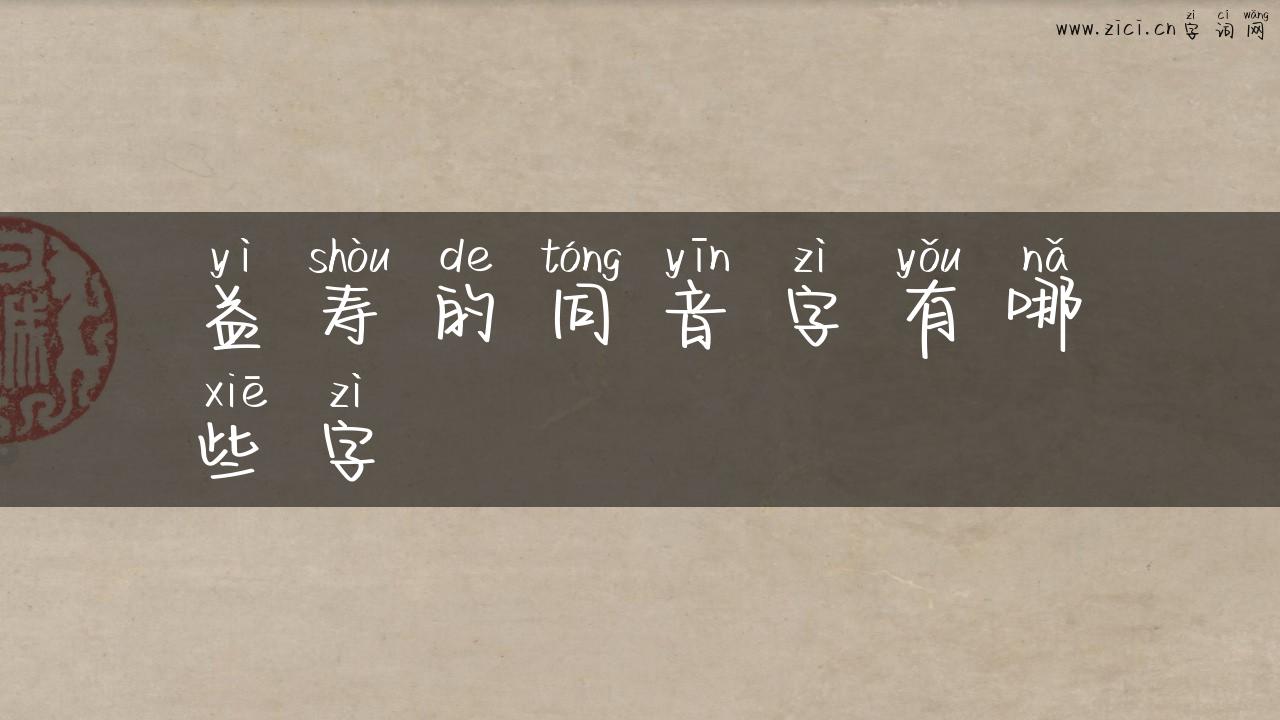 zì cí wǎng
www.zici.cn 字词网
yì shòu de tóng yīn zì yǒu nǎ
益寿的同音字有哪
xiē zì
些字